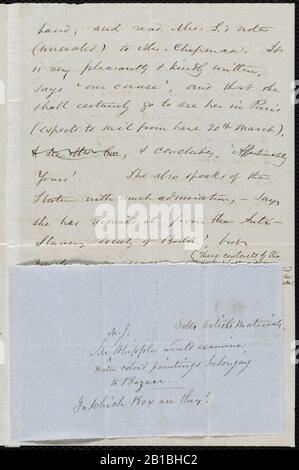 hand, and read Mrs. S.'s note
(unsealed) to Mrs. Chapman. It
is very pleasantly & kindly written,
says "our cause", and that she
shall certainly go to see her in Paris
(expects to sail from here 20th March),
& concludes, "Affectionately
Yours". She also speaks of the
Statue with much admiration, — says
she has it from the Anti-
Slavery Society of Boston", but
M. J.
Mr Whipple would examine
Water color paintings belonging
to Bazaar
In which Box are they?
alamy
Image ID: 2B1BHC2
www.alamy.com